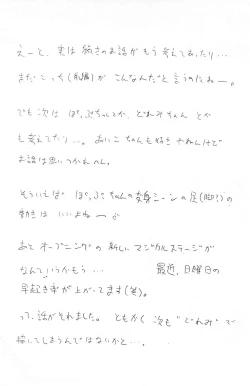 えーと、実は続きのお話がもう考えてあったり…
まだこっち(前編)がこんなんだと言うのにねー。
でも次は ぽっぷちゃんとか、どれみちゃん とか
も考えてたり…。あいこちゃんも好きやねんけど
お話は思いつかんへん。
そういえば ぽっぷちゃんの変身シーンの足(脚?)の
動きは いいよねー♪
あと オープニングの 新しいマジカルステージが
なんていうかもう… 最近、日曜日の
早起き率が上がってます(笑)。
って、話がそれました。ともかく 次も"どれみ"で
描いてしまうんではないかと…。